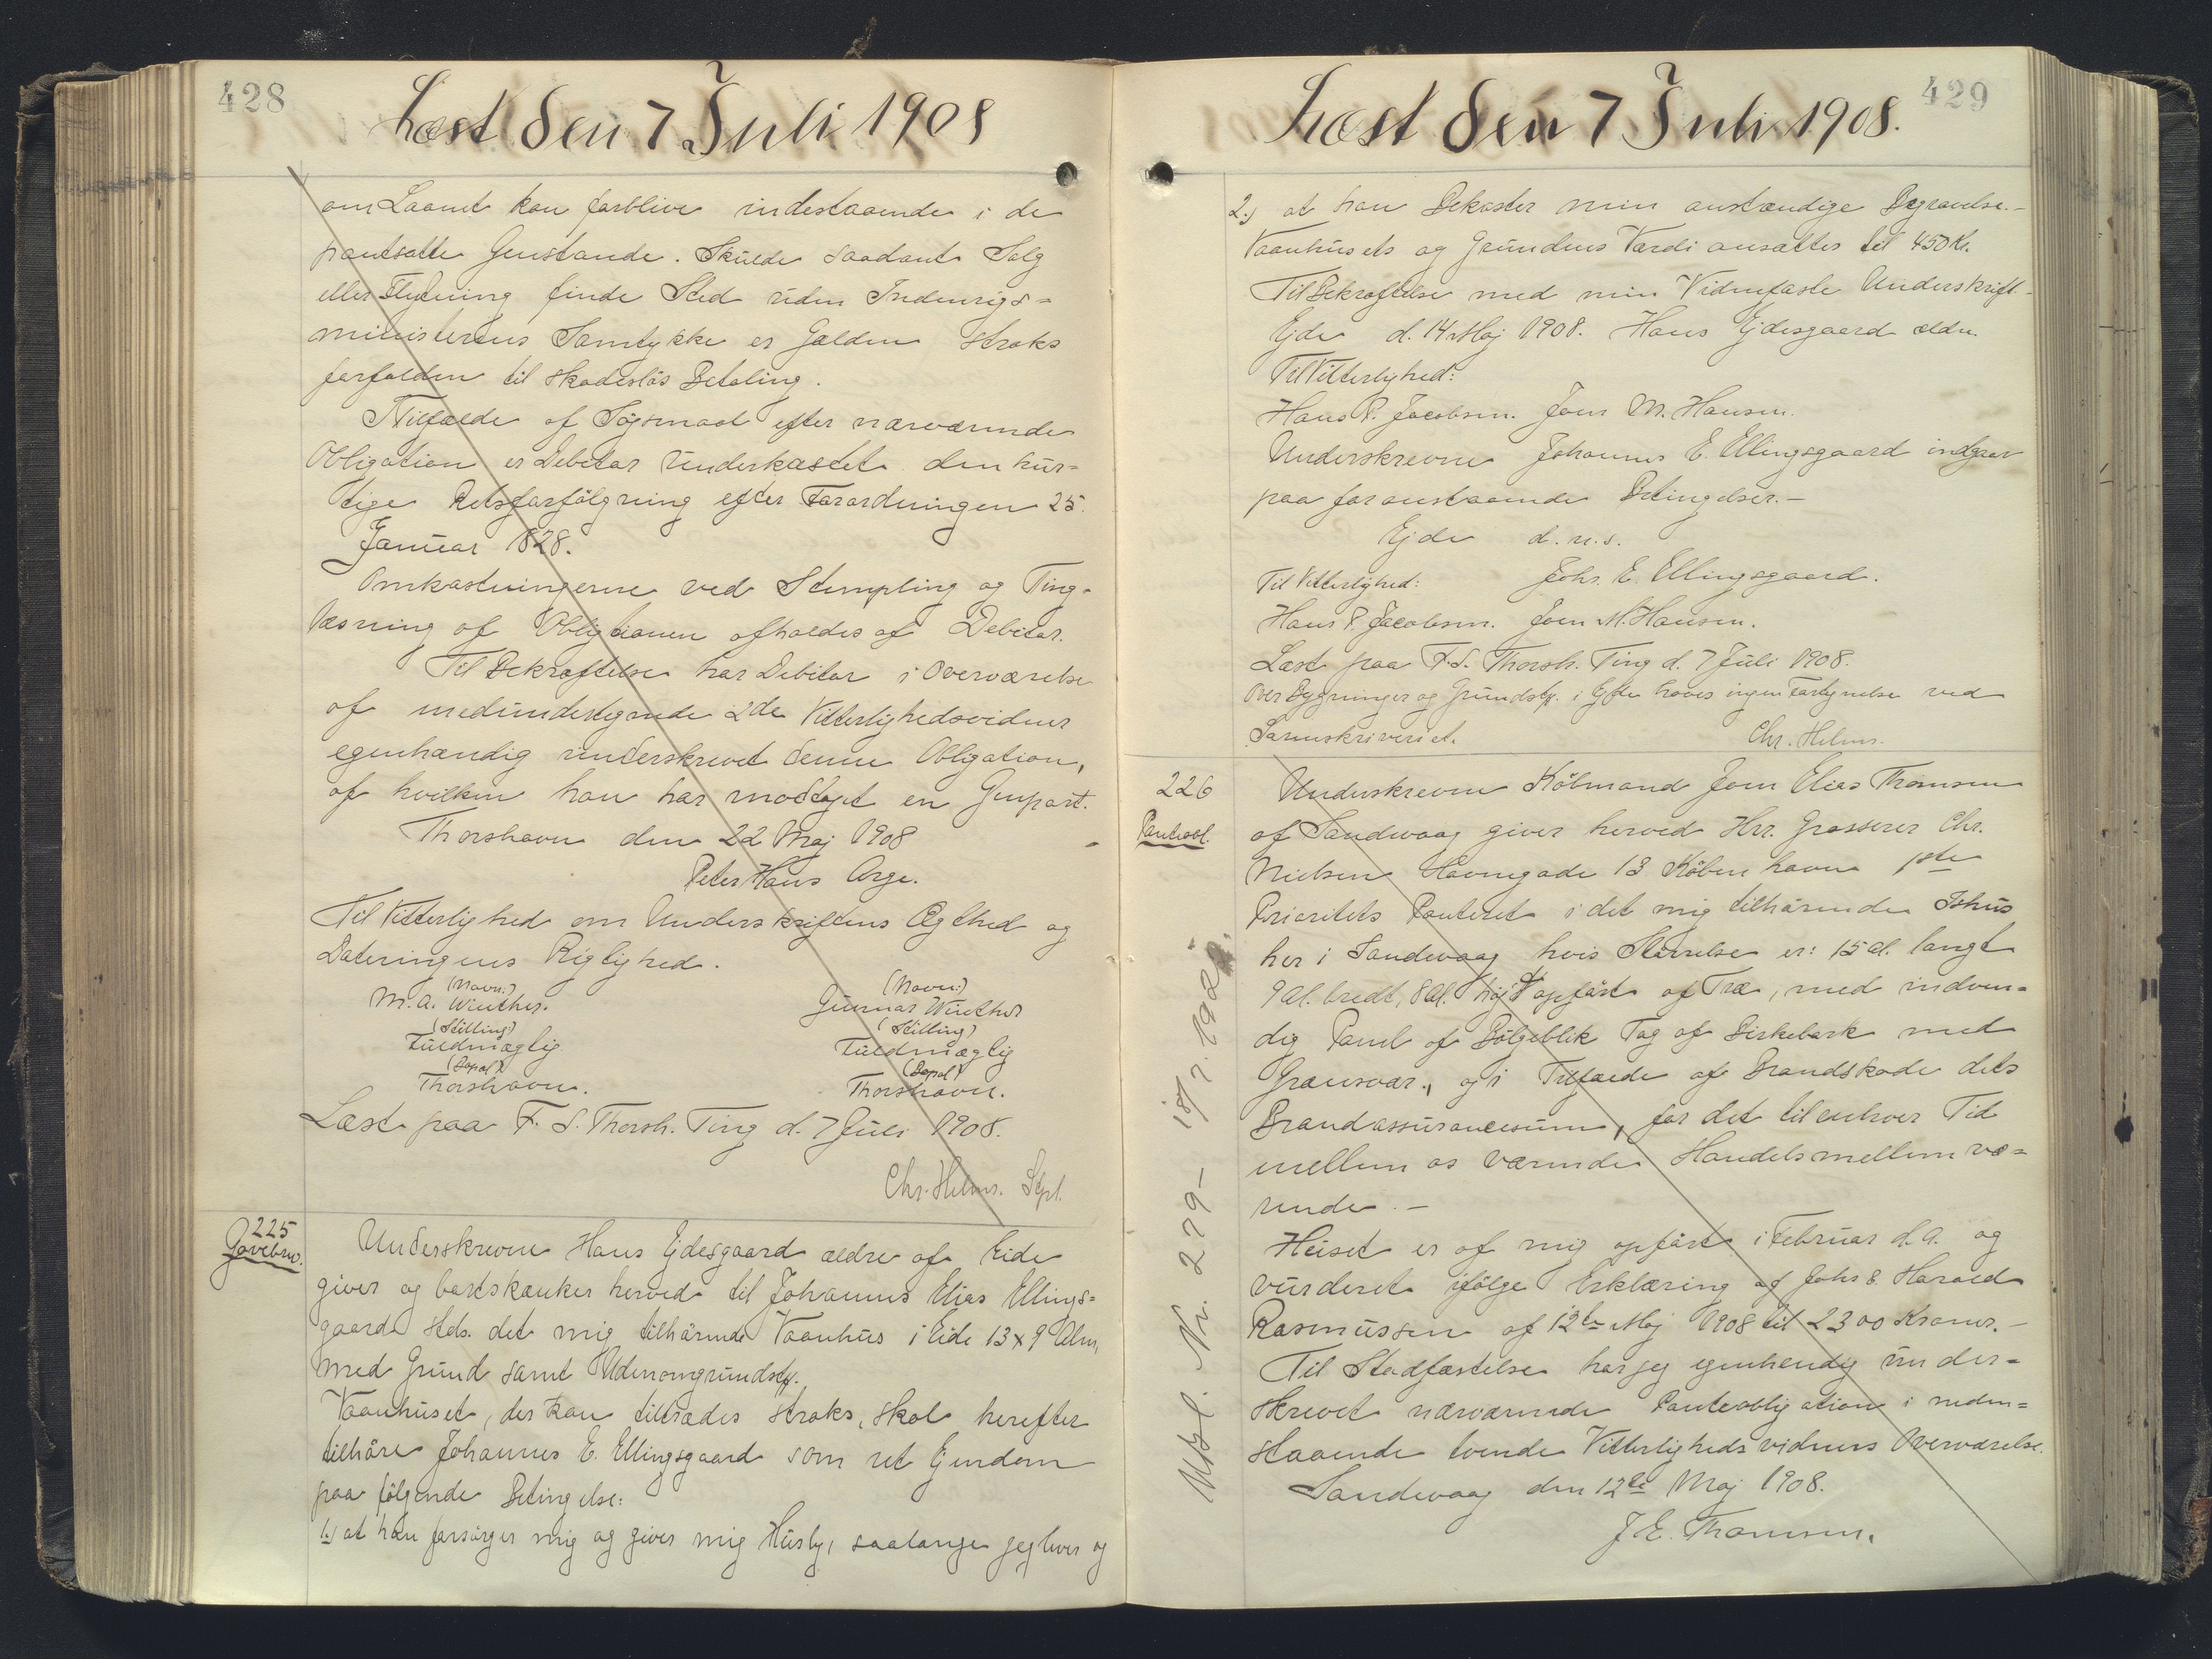 428
Læst den 7 Juli 1908
om Laanet kan forblive indestaaende i de
pantsatte Genstande. Skulde saadant Salg
eller Flytning finde Sted uden Indenrigs=
ministeriens Samtykke er Gælden straks
forfalden til skadeslös Betaling.
I Tilfælde af Sögsmaal efter nærværende
Obligation er Debitor underkastet den hur=
tige Retsforfölgning efter Forordningen 25.
Januar 1828.
Omkostningerne ved Stempling og Ting=
læsning af Obligationen afholdes af Debitor.
Til Bekræftelse har Debitor i Overværelse
af medundertegnede 2de Vitterlighedsvidner
egenhændig underskrevet denne Obligation,
af hvilken han har modtaget en Genpart.
Thorshavn den 22 Maj 1908
Peter Hans Arge.
Til Vitterlighed om Underskriftens Ægthed og
Dateringens Rigtighed.
(Navn:) (Navn:)
M. A. Winther. Gunnar Winther
(Stilling) (Stilling)
Fuldmægtig Fuldmægtig
(Bopæl) (Bopæl)
Thorshavn. Thorshavn.
Læst paa F. S. Thorsh. Ting d. 7 Juli 1908.
Chr. Helms. Stpl.
225
Gavebrev.
Underskrevne Hans Ejdesgaard ældre af Eide
giver og bortskænker herved til Johannes Elias Ellings=
gaard stds. det mig tilhörende Vaanhus i Eide 13 x 9 Alen,
med Grund samt Udenomgrundstk.
Vaanhuset, der kan tiltrædes straks, skal herefter
tilhöre Johannes E. Ellingsgaard som ret Ejendom
paa fölgende Betingelse:
1.) at han forsörger mig og giver mig Husly, saalænge jeg lever og
429
Læst den 7 Juli 1908.
2.) at han bekoster min anstændige Begravelse.-
Vaanhusets og Grundens Værdi ansættes til 450 Kr.
Til Bekræftelse med min Vidnefaste Underskrift-
Ejde d. 14 Maj 1908. Hans Ejdesgaard ældre.
Til Vitterlighed:
Hans P. Jacobsen. Joen M. Hansen.
Underskrevne Johannes E. Ellingsgaard indgaar
paa foranstaaende Betingelser.-
Ejde d. u. s.
Til Vitterlighed: Johs. E. Ellingsgaard.
Hans P. Jacobsen. Joen M. Hansen.
Læst paa F. S. Thorsh. Ting d. 7 Juli 1908.
Over Bygninger og Grundstk. i Ejde haves ingen Fortegnelse ved
Sorenskriveriet. Chr. Helms.
226
Panteobl.
Underskrevne Köbmand Joen Elias Thomsen
af Sandevaag giver herved Hrr. Grosserer Chr.
Nielsen Havnegade 13 Köbenhavn 1ste
Prioritets Panteret i det mig tilhörende Ishus
her i Sandevaag hvis Störrelse er: 15 al. langt
9 al. bredt, 8 al. höjt opfört af Træ, med indven=
dig Panel af Bölgeblik Tag af Birkebark med
Grønsvær., og i Tilfælde af Brandskade dets
Brandassurancesum, for det til enhver Tid
mellem os værende Handelsmellemvæ=
rende.-
Huset er af mig opfört i Februar d. A. og
vurderet ifölge Erklæring af Johs E. Harald
Rasmussen af 12te Maj 1908 til 2300 Kroner.-
Til Stadfæstelse har jeg egenhændig under=
skrevet nærværende Panteobligation i neden=
staaende tvende Vitterlighedsvidners Overværelse.
Sandevaag den 12te Maj 1908.
J. E. Thomsen.